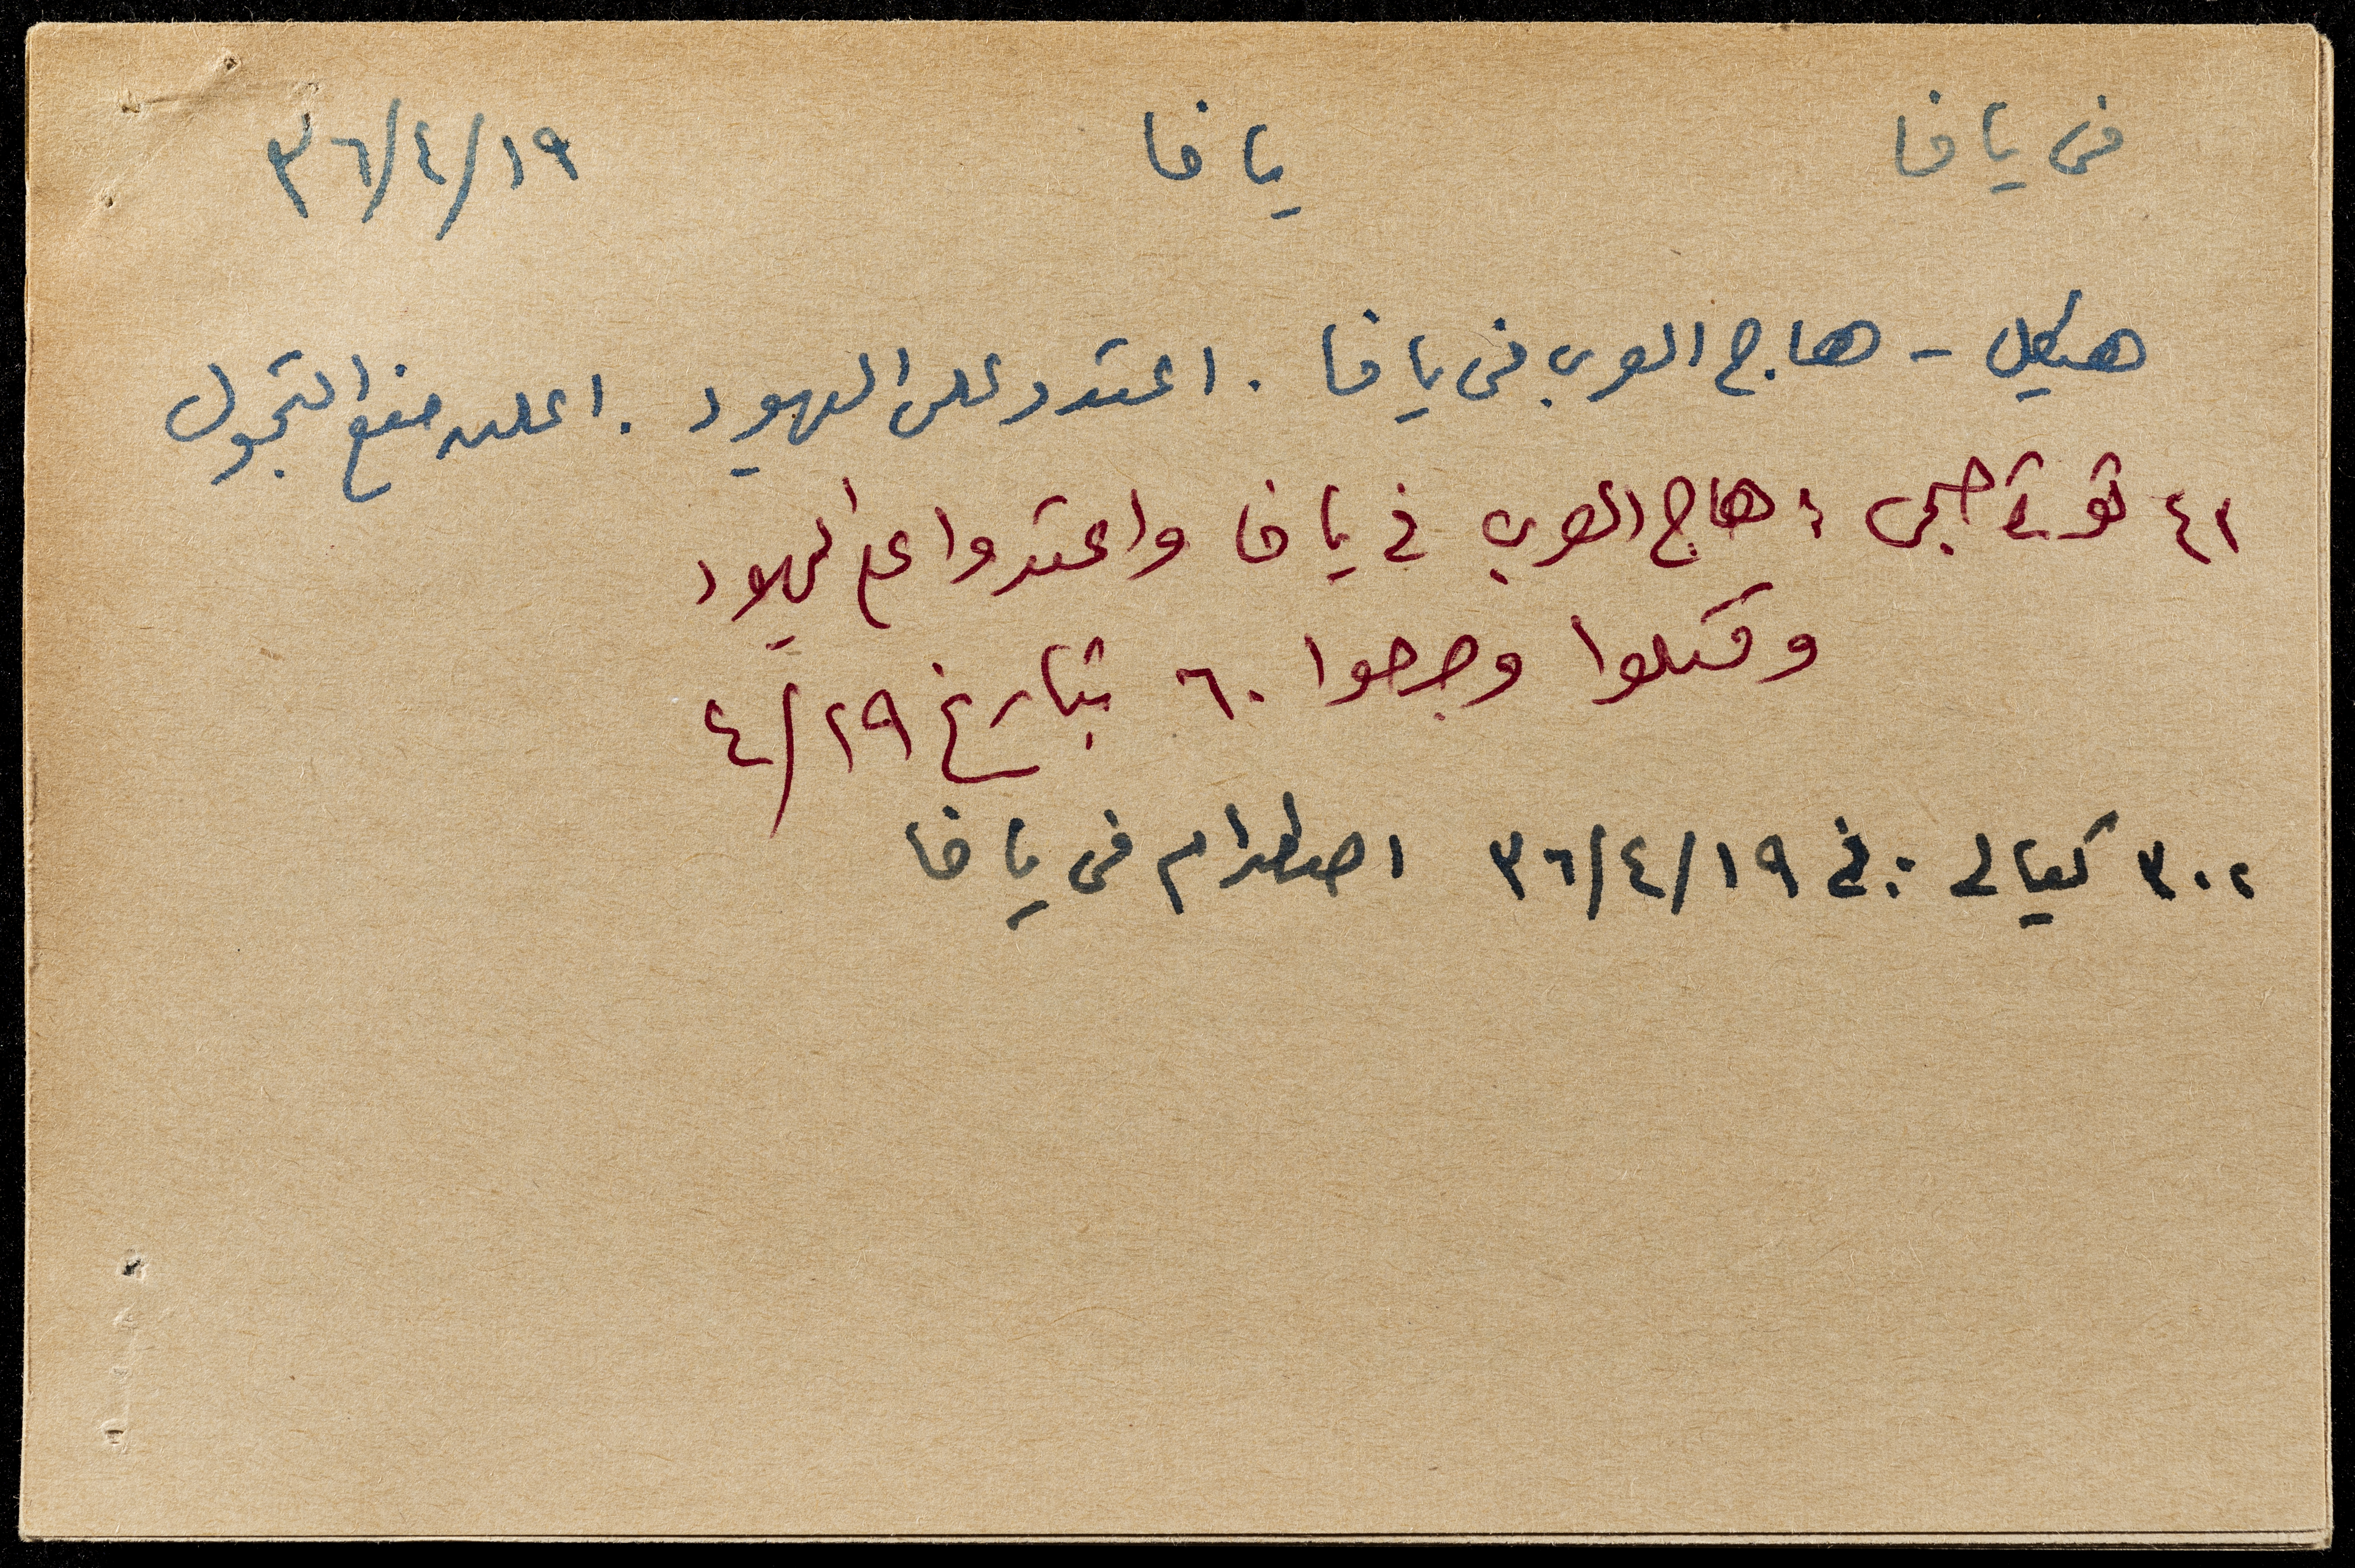 فى يافا    يافا    ١٩/٤/٣٦
هيكل - هاج العرب فى يافا . اعتدوا على اليهود . اعلن منع التجول
٤١ ثورة : هاج العرب في يافا واعتدوا على اليهود
وقتلوا وجرحوا ٦٠ بتاريخ ١٩/٤
٣٠٢ كيالي : في ١٩/٤/٣٦ اصطدام فى يافا